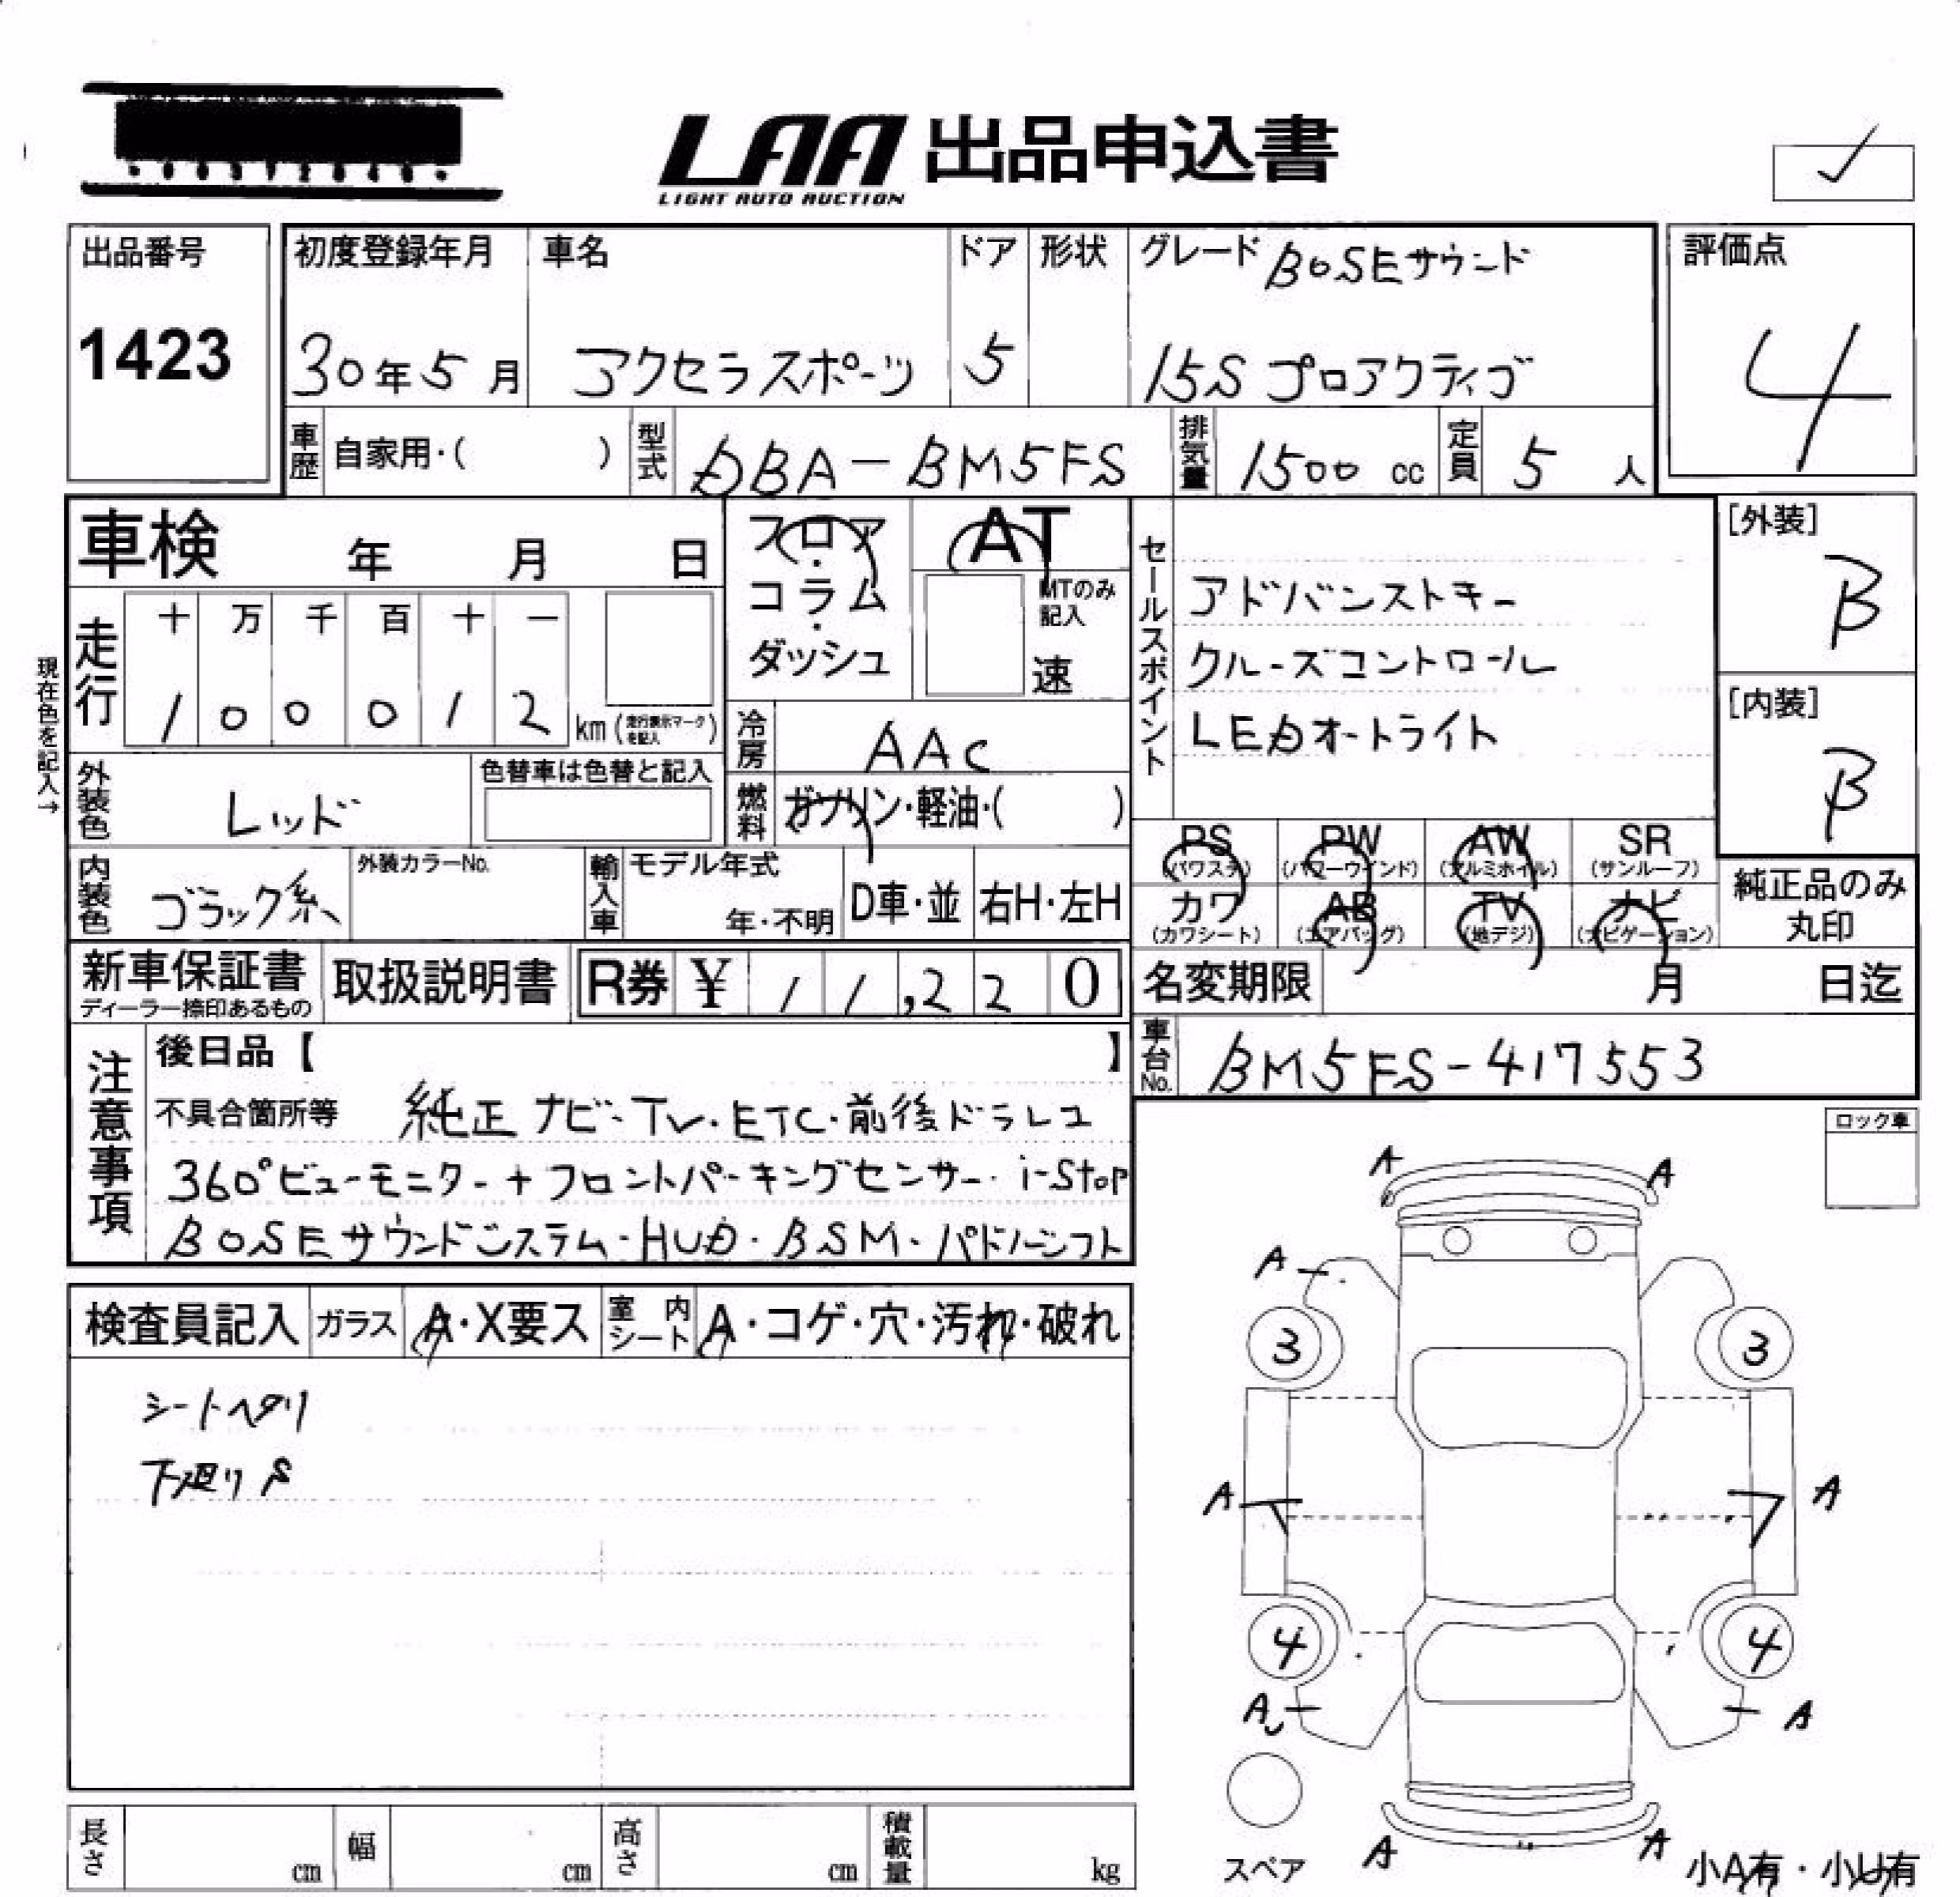 LAA 出品申込書
LIGHT AUTO AUCTION
出品番号
1423
初度登録年月
30年5月
車名
アクセラスポーツ
ドア
5
形状
グレード BOSEサウンド
15S プロアクティブ
評価点
4
車歴 自家用・( )
型式 DBA-BM5FS
排気量 1500 cc
定員 5 人
車検 年 月 日
フロア・コラム・ダッシュ
AT
MTのみ記入
速
現在色を記入→
走行
十 万 千 百 十 一
1 0 0 0 1 2 km (走行表示マークを記入)
冷房 AAC
燃料 ガソリン・軽油・( )
外装色 レッド
色替車は色替と記入
内装色 ブラック系
外装カラーNo.
輸入車 モデル年式
年・不明
D車・並
右H・左H
セールスポイント
アドバンストキー
クルーズコントロール
LEDオートライト
[外装]
B
[内装]
B
PS (パワステ)
PW (パワーウインド)
AW (アルミホイル)
SR (サンルーフ)
カワ (カワシート)
AB (エアバッグ)
TV (地デジ)
ナビ (ナビゲーション)
純正品のみ丸印
新車保証書
ディーラー捺印あるもの
取扱説明書
R券 ¥ 11,220
名変期限 月 日迄
車台No. BM5FS-417553
注意事項
後日品【 】
不具合箇所等 純正ナビ・TV・ETC・前後ドラレコ
360°ビューモニター+フロントパーキングセンサー・i-Stop
BOSEサウンドシステム・HUD・BSM・パドルシフト
ロック車
検査員記入
ガラス A・X要ス
室内シート A・コゲ・穴・汚れ・破れ
シートヘタリ
下廻りS
A A
A
3 3
A A
4 4
A A
スペア
A A
小A有・小U有
長さ cm
幅 cm
高さ cm
積載量 kg